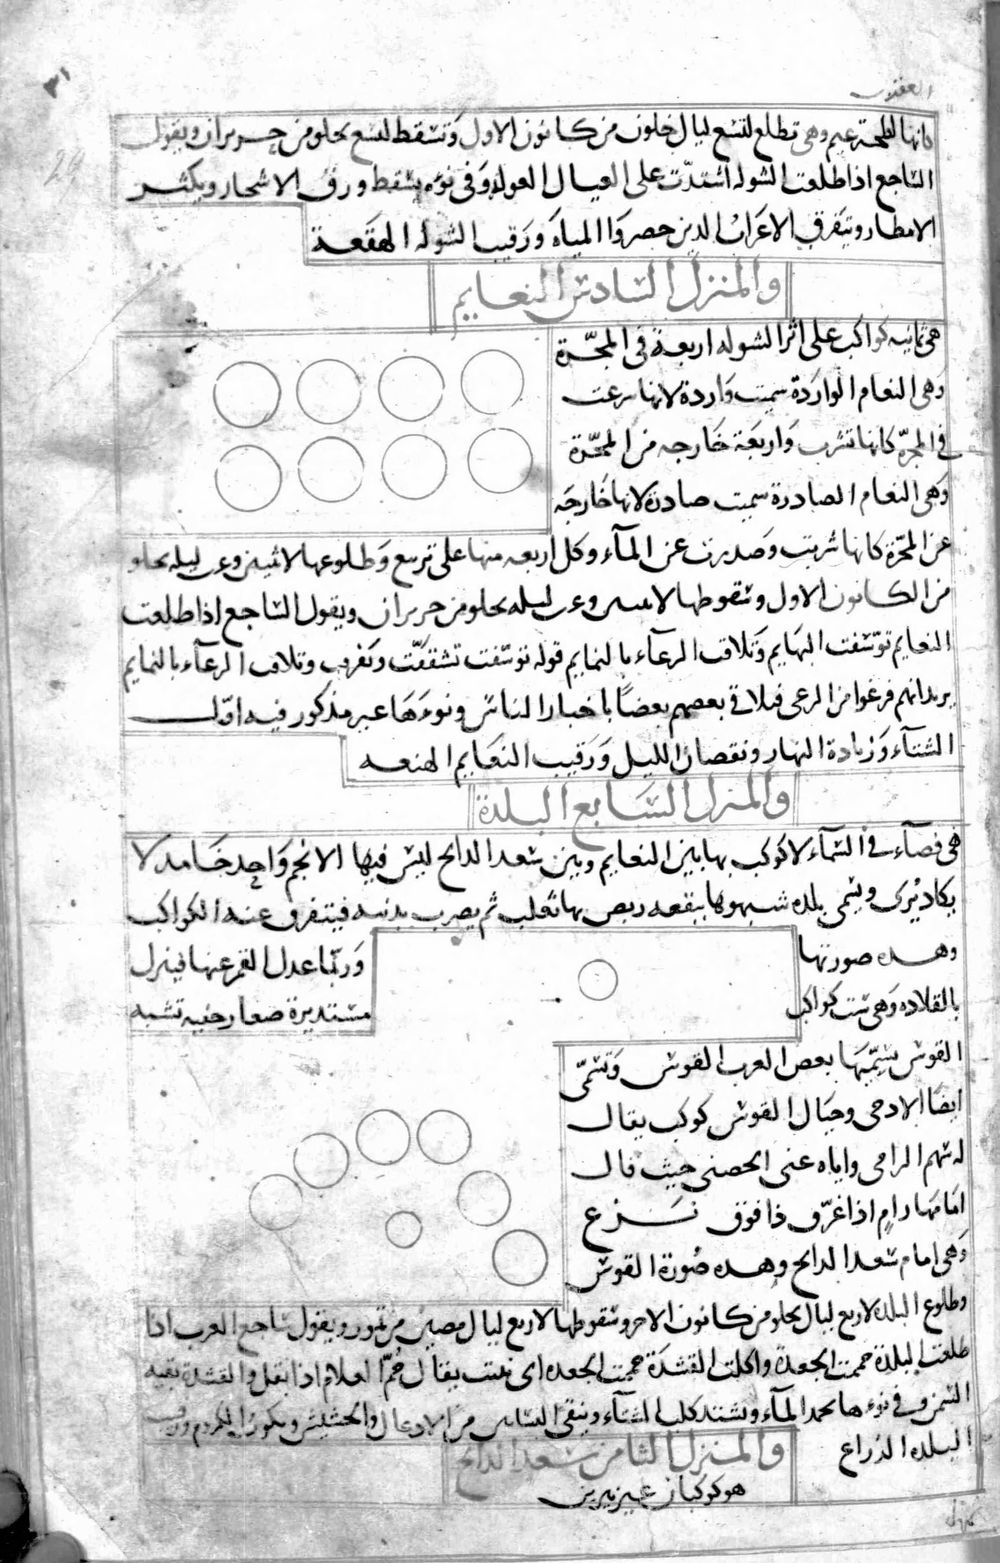 ٣١
29
العقرب
كانها لطخة غيم وهي تطلع لتسع ليال خلون من كانون الاول وتسقط لتسع تخلو من حزيران ويقول
الساجع اذا طلعت الشوله اشتدّت على العيال العوله وفي نوئه يسقط ورق الاشجار ويكثر
الامطار ويتفرق الاعراب الذين حصروا المياه ورقيب الشوله الهقعة
والمنزل السادس النعايم
هي ثمانيه كواكب على اثر الشوله اربعة في المجرّة
وهي النعام الواردة سميت واردة لانها شرعت
في المجرّه كانها تشرب واربعة خارجه من المجرّة
وهي النعام الصادرة سميت صادرة لانها خارجه
عن المجرّة كانها شربت وصدرت عن المآء وكل اربعه منها على تربيع وطلوعها لاثنين وعشرين ليله تخلو
من الكانون الاول وسقوطها لاثنين وعشرين ليله تخلو من حزيران ويقول الساجع اذا طلعت
النعايم توسّفت البهايم وتلاقت الرعآء بالنمايم قوله توسّفت تشققت وتلاقت الرعآء بالنمايم
يريد انهم فرغوا من الرعي فيلاقي بعضهم بعضًا باخبار الناس ونوءها غير مذكور فيه اوّل
الشتآء وزيادة النهار ونقصان الليل ورقيب النعايم الهنعه
والمنزل السابع البلدة
هي فضآء في السمآء لا كوكب بها بين النعايم وبين سعد الذابح ليس فيها الا نجم واحد خامد لا
يكاد يُرى ويسمى بلده شبهوها ببقعه ربض بها ثعلب ثم يضرب بذنبه فيتفرق عنه الكواكب
وهذه صورتها
وربّما عدل القمر عنها فينزل
بالقلاده وهي ست كواكب
مستديرة صغار خفيه تشبه
القوس يسمّيها بعض العرب القوس وتسمّى
ايضًا الادحى وحيال القوس كوكب يقال
له سهم الرامى واياه عنى الحصنى حيث قال
امامها رامٍ اذا غرّق ذا فوق نزع
وهي امام سعد الذابح وهذه صورة القوس
وطلوع البلده لاربع ليال تخلو من كانون الاخر وسقوطها لاربع ليال مضين من تموز ويقول ساجع العرب اذا
طلعت البلدة حممت الجعدة واكلت القشدة حممت الجعده اى نبتت يقال حُمّم الغلام اذا بقل والقشدة بقيه
السمن وفي نوءها يجمد المآء ويشتد كلب الشتآء وينقى البساتين من الادغال والحشيش ويكون الكروم ورقيب
البلده الذراع
والمنزل الثامن سعد الذابح
هو كوكبان غير نيرين